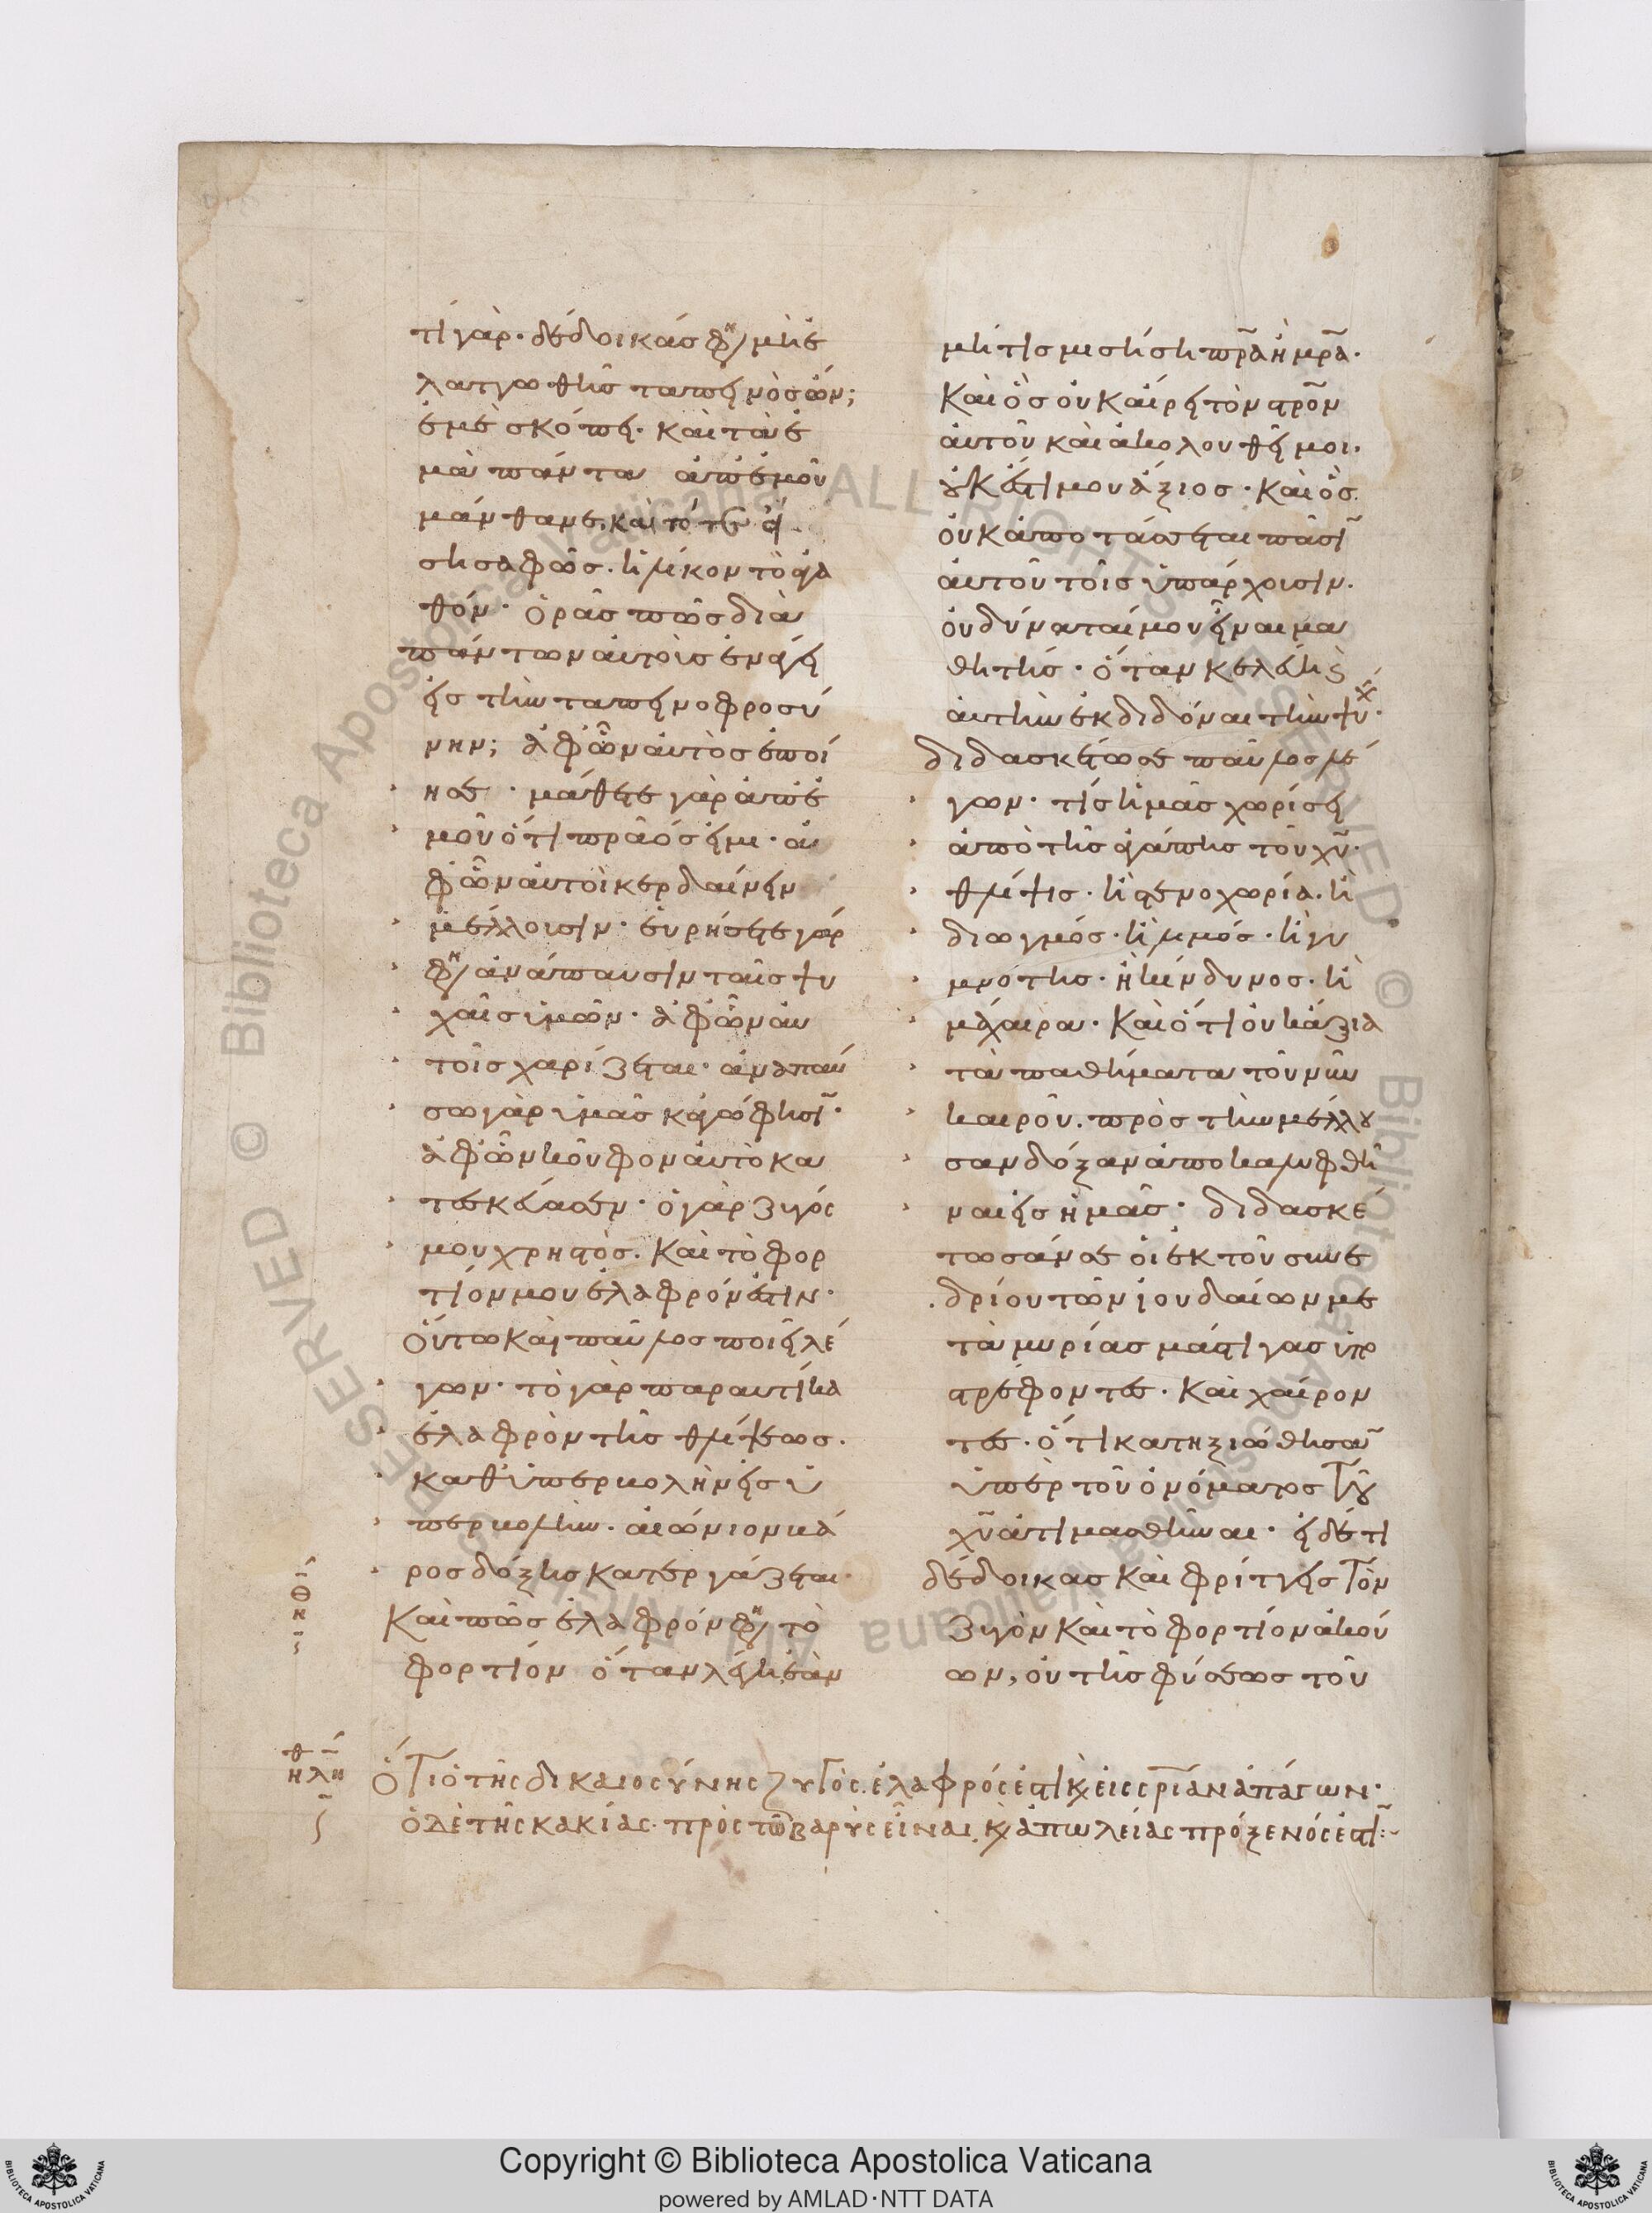 τί γὰρ· δέδοικάς φη(σι) μὴ ἐ
λαττωθῆις ταπεινὸς ὤν;
ἐμὲ σκόπει· καὶ τὰ ἐ
μὰ πάντα ἀπ' ἐμοῦ
μάνθανε, καὶ τότε εἴ
ση σαφῶς· ἡλίκον τὸ ἀγα
θόν· ὁρᾶς πῶς διὰ
πάντων αὐτοὺς ἐνάγει
εἰς τὴν ταπεινοφροσύ
νην; ἀφ' ὧν αὐτὸς ἐποί
ησε· μάθετε γὰρ ἀπ' ἐ
μοῦ ὅτι πρᾶός εἰμι· ἀ
φ' ὧν αὐτοὶ κερδαίνειν
μέλλουσιν· εὑρήσετε γάρ
φη(σιν) ἀνάπαυσιν ταῖς ψυ
χαῖς ὑμῶν· ἀφ' ὧν αὐ
τοῖς χαρίζεται· ἀναπαύ
σω γὰρ ὑμᾶς κἀγώ φησῖ·
ἀφ' ὧν κοῦφον αὐτὸ κα
τεσκεύασεν· ὁ γὰρ ζυγός
μου χρηστὸς. καὶ τὸ φορ
τίον μου ἐλαφρόν ἐστιν·
Οὕτω καὶ παῦλος ποιεῖ λέ
γων· τὸ γὰρ παραυτίκα
ἐλαφρὸν τῆς θλίψεως.
καθ' ὑπερβολὴν εἰς ὑ
περβολὴν. αἰώνιον βά
ρος δόξης κατεργάζεται·
Καὶ πῶς ἐλαφρόν φη(σι) τὸ
φορτίον ὅταν λέγηι ἐὰν
μή τις μεισήση π̅ρ̅α ἢ μ̅ρ̅α·
Καὶ ὃς οὐκ αἴρει τὸν στρ̅ον
αὐτοῦ καὶ ἀκολουθεῖ μοι.
οὐκ ἔστι μου ἄξιος· καὶ ὃς
οὐκ ἀποτάσσεται πᾶσῖ
αὐτοῦ τοῖς ὑπάρχουσιν.
οὐ δύναταί μου εἶναι μα
θητής· ὅταν κελεύη (καὶ)
αὐτὴν ἐκδιδόναι τὴν ψυχ·
διδασκέτω σε παῦλος λέ
γων· τίς ἡμᾶς χωρίσει
ἀπὸ τῆς ἀγάπης τοῦ χ̅υ̅·
θλίψις. ἢ στενοχωρία. ἢ
διωγμός· ἢ λιμός· ἢ γυ
μνότης· ἢ κίνδυνος· ἢ
μάχαιρα· Καὶ ὅτι οὐκ ἄξια
τὰ παθήματα τοῦ νῦν
καιροῦ. πρὸς τὴν μέλλου
σαν δόξαν ἀποκαλυφθῆ
ναι εἰς ἡμᾶς· διδασκέ
τωσάν σε οἱ ἐκ τοῦ συνε
δρίου τῶν ἰουδαίων με
τὰ μυρίας μάστιγας ὑπο
στρέφοντες· Καὶ χαίρον
τες· ὅτι κατηξιώθησᾶ
ὑπὲρ τοῦ ὀνόματος τοῦ
χ̅υ̅ ἀτιμασθῆναι· εἰ δὲ τι
δέδοικας καὶ φρίττεις τὸν
ζυγὸν καὶ τὸ φορτίον ἀκού
ων, οὐ τῆς φύσεως τοῦ
Ὅτι ὁ τῆς δικαιοσύνης ζυγὸς. ἐλαφρός ἐστι κ(αὶ) εἰς σ̅ρ̅ίαν ἀπάγων·
ὁ δὲ τῆς κακίας· πρὸς τῶ βαρὺς εἶναι, κ(αὶ) ἀπωλείας πρόξενός ἐστι:~